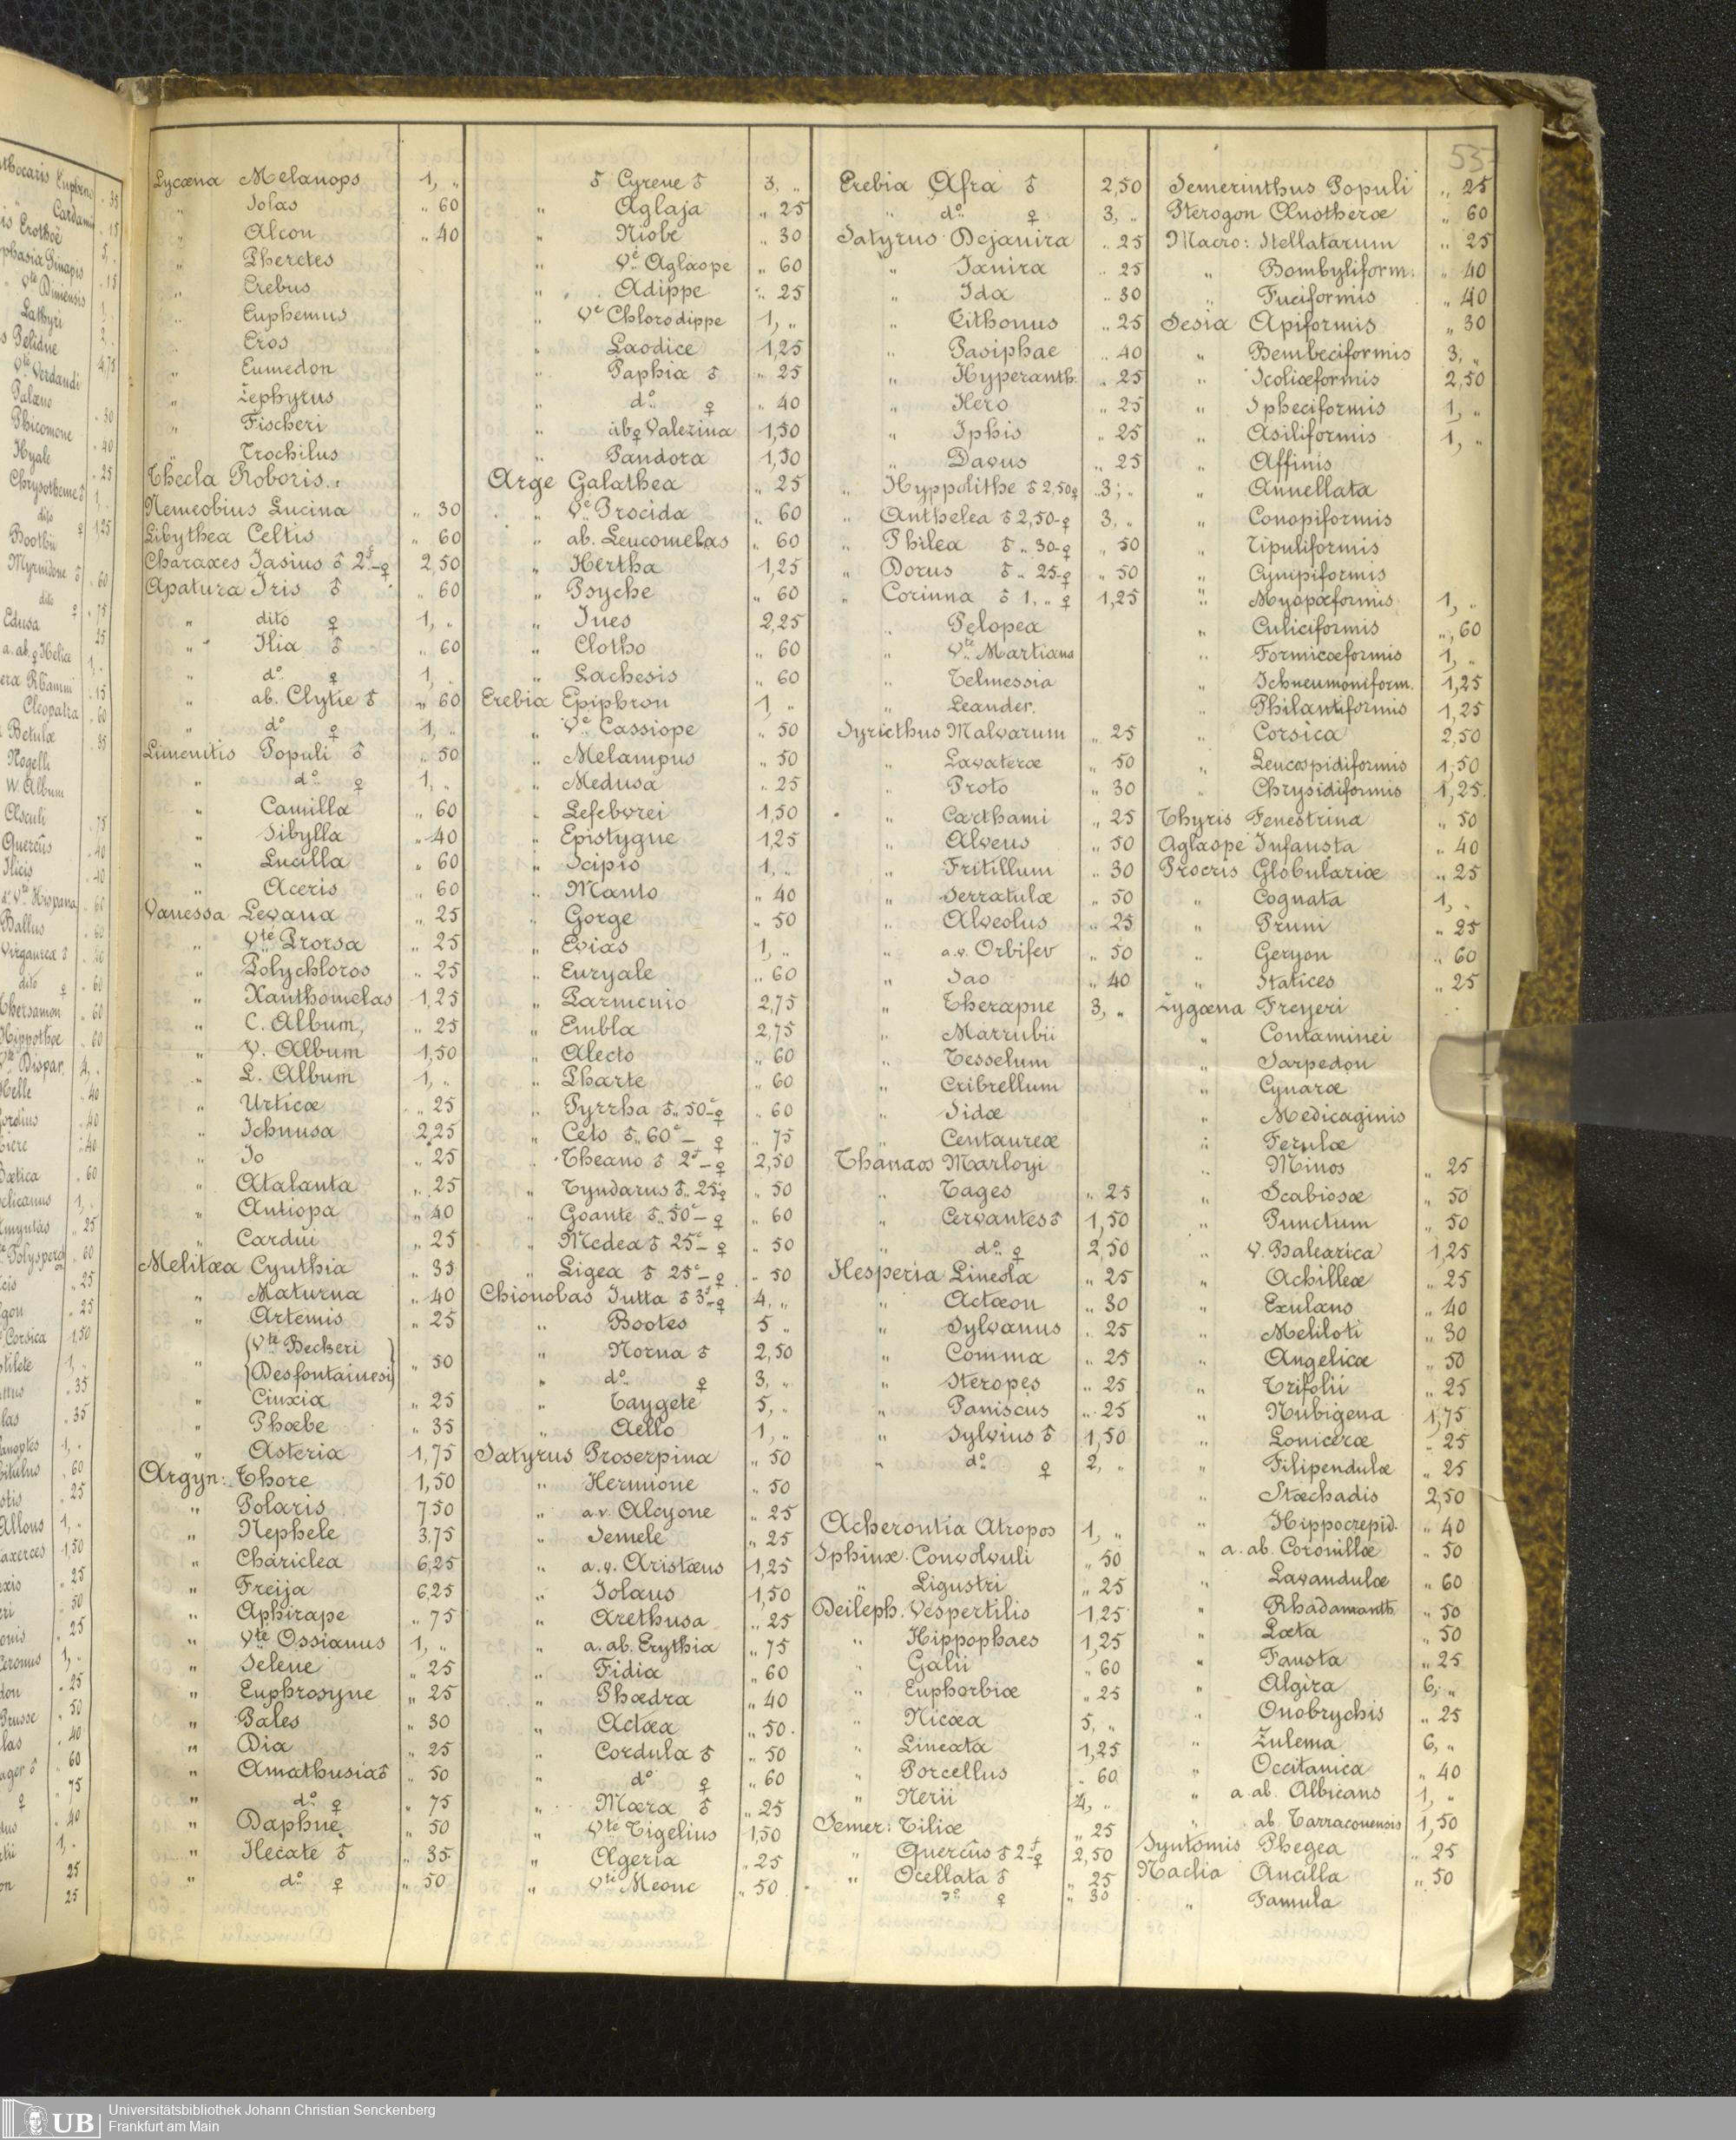 53
Lycæna Melanops 1, "
" Iolas " 60
" Alcon " 40
" Pheretes
" Erebus
" Euphemus
" Eros
" Eumedon
" Zephyrus
" Fischeri
" Trochilus
Thecla Roboris.
Nemeobius Lucina " 30
Libythea Celtis " 60
Charaxes Iasius ♂ 2 f - ♀ 2,50
Apatura Iris ♂ " 60
" dito ♀ 1, "
" Ilia ♂ " 60
" do. ♀ 1, "
" ab. Clytie ♂ " 60
" do ♀ 1, "
Limenitis Populi ♂ " 50
" do. ♀ 1, "
" Camilla " 60
" Sibylla " 40
" Lucilla " 60
" Aceris " 60
Vanessa Levana " 25
" Vté Prorsa " 25
" Polychloros " 25
" Xanthomelas 1,25
" C. Album, " 25
" V. Album 1,50
" L. Album 1, "
" Urticæ " 25
" Ichnusa 2,25
" Io " 25
" Atalanta " 25
" Antiopa " 40
" Cardui " 25
Melitæa Cynthia " 35
" Maturna " 40
" Artemis " 25
" (Vte Beckeri }
{Desfontainesi} " 50
" Cinxia " 25
" Phœbe " 35
" Asteria 1,75
Argyn: Thore 1,50
" Polaris 7,50
" Nephele 3,75
" Chariclea 6,25
" Freija 6,25
" Aphirape " 75
" Vté Ossianus 1, "
" Selene " 25
" Euphrosyne " 25
" Pales " 30
" Dia " 25
" Amathusia ♂ " 50
" do. ♀ " 75
" Daphne " 50
" Hecate ♂ " 35
" do. ♀ " 50
♂ Cyrene ♂ 3, "
" Aglaja " 25
" Niobe " 30
" Vé Aglaope " 60
" Adippe " 25
" Vé Chlorodippe 1, "
" Laodice 1,25
" Paphia ♂ " 25
" do. ♀ " 40
" ab ♀ Valezina 1,50
" Pandora 1,30
Arge Galathea " 25
" Vé Procida " 60
" ab. Leucomelas " 60
" Hertha 1,25
" Psyche " 60
" Ines 2,25
" Clotho " 60
" Lachesis " 60
Erebia Epiphron 1, "
" Vé Cassiope " 50
" Melampus " 50
" Medusa " 25
" Lefebvrei 1,50
" Epistygne 1,25
" Scipio 1, "
" Manto " 40
" Gorge " 50
" Evias 1, "
" Euryale " 60
" Parmenio 2,75
" Embla 2,75
" Alecto " 60
" Pharte " 60
" Pyrrha ♂ " 50 - ♀ " 60
" Ceto ♂ " 60 - ♀ " 75
" Theano ♂ 2 f - ♀ 2,50
" Tyndarus ♂ " 25 ♀ " 50
" Goante ♂ " 50 - ♀ " 60
" Medea ♂ 25 - ♀ " 50
" Ligea ♂ 25 - ♀ " 50
Chionobas Jutta ♂ 3 f - ♀ 4, "
" Bootes 5 "
" Norna ♂ 2,50
" do. ♀ 3, "
" Taygete 5, "
" Aello 1, "
Satyrus Proserpina " 50
" Hermione " 50
" a.v. Alcyone " 25
" Semele " 25
" a.v. Aristæus 1,25
" Iolaus 1,50
" Arethusa " 25
" a. ab. Erythia " 75
" Fidia " 60
" Phædra " 40
" Actæa " 50
" Cordula ♂ " 50
" do ♀ " 60
" Mæra ♂ " 25
" Vté Tigelius 1,50
" Ægeria " 25
" Vté Meone " 50
Erebia Afra ♂ 2,50
" do. ♀ 3, "
Satyrus Dejanira " 25
" Ianira " 25
" Ida " 30
" Tithonus " 25
" Pasiphae " 40
" Hyperanth. " 25
" Hero " 25
" Iphis " 25
" Davus " 25
" Hyppolithe ♂ 2,50 ♀ " 3; "
" Anthelea ♂ 2,50 - ♀ 3, "
" Philea ♂ " 30 - ♀ " 50
" Dorus ♂ " 25 - ♀ " 50
" Corinna ♂ 1, " ♀ 1,25
" Pelopea
" Vte Martiana
" Telmessia
" Leander.
Syricthus Malvarum " 25
" Lavateræ " 50
" Proto " 30
" Carthami " 25
" Alveus " 50
" Fritillum " 30
" Serratulæ " 50
" Alveolus " 25
" a.v. Orbifer " 50
" Sao " 40
" Therapne 3, "
" Marrubii
" Tesselum
" Cribrellum
" Sidæ
" Centaureæ
Thanaos Marloyi
" Tages " 25
" Cervantes ♂ 1,50
" do. ♀ 2,50
Hesperia Lineola " 25
" Actæon " 30
" Sylvanus " 25
" Comma " 25
" Steropes " 25
" Paniscus " 25
" Sylvius ♂ 1,50
" do. ♀ 2, "
Acherontia Atropos 1, "
Sphinx Convolvuli " 50
" Ligustri " 25
Deileph. Vespertilio 1,25
" Hippophaes 1,25
" Galii " 60
" Euphorbiæ " 25
" Nicæa 5, "
" Lineata 1,25
" Porcellus " 60
" Nerii 4, "
Smer: Tiliæ " 25
" Quercûs ♂ 2 f - ♀ 2,50
" Ocellata ♂ " 25
" do. ♀ " 30
Semerinthus Populi " 25
Pterogon Ænotheræ " 60
Macro: Stellatarum " 25
" Bombyliform. " 40
" Fuciformis " 40
Sesia Apiformis " 30
" Bembeciformis 3, "
" Scoliæformis 2,50
" Spheciformis 1, "
" Asiliformis 1, "
" Affinis
" Annellata
" Conopiformis
" Tipuliformis
" Cynipiformis
" Myopæformis 1, "
" Culiciformis " 60
" Formicæformis 1, "
" Ichneumoniform. 1,25
" Philantiformis 1,25
" Corsica 2,50
" Leucospidiformis 1,50
" Chrysidiformis 1,25
Thyris Fenestrina " 50
Aglaope Infausta " 40
Procris Globulariæ " 25
" Cognata 1, "
" Pruni " 25
" Geryon " 60
" Statices " 25
Zygæna Freyeri
" Contaminei
" Sarpedon
" Cynaræ
" Medicaginis
" Ferulæ
" Minos " 25
" Scabiosæ " 50
" Punctum " 50
" V. Balearica 1,25
" Achilleæ " 25
" Exulans " 40
" Meliloti " 30
" Angelicæ " 50
" Trifolii " 25
" Nubigena 1,75
" Loniceræ " 25
" Filipendulæ " 25
" Stæchadis 2,50
" Hippocrepid. " 40
" a. ab. Coronillæ " 50
" Lavandulæ " 60
" Rhadamanth. " 50
" Læta " 50
" Fausta " 25
" Algira 6, "
" Onobrychis " 25
" Zulema 6, "
" Occitanica " 40
" a. ab. Albicans 1, "
" ab. Tarraconensis 1,50
Syntomis Phegea " 25
Naclia Ancilla " 50
" Famula
UB
Universitätsbibliothek Johann Christian Senckenberg
Frankfurt am Main